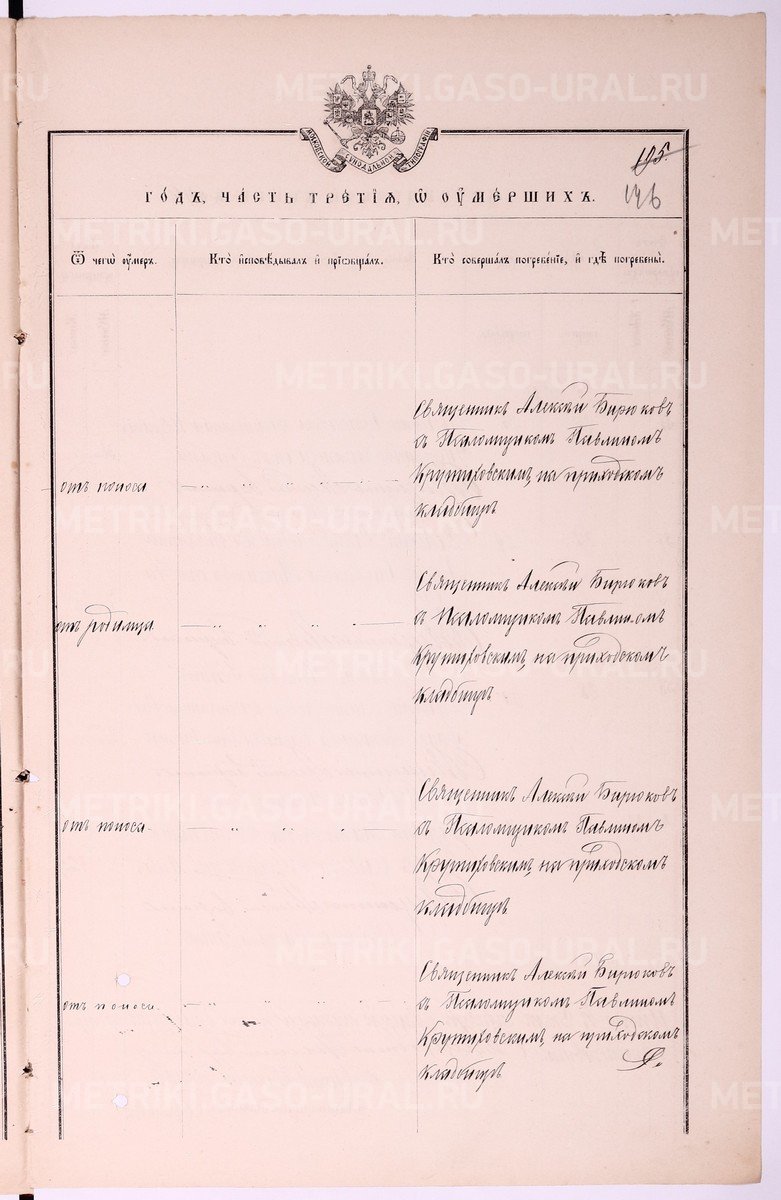 METRIKI.GASO-URAL.RU
МОСКОВСКОЙ СѴНОДАЛЬНОЙ ТИПОГРАФІИ
105.
146
ГО́ДЪ, ЧА́СТЬ ТРЕ́ТІЯ, Ѡ҆ ОУ҆МЕ́РШИХЪ.
Ѿ чегѡ̀ оу҆́меръ.
Кто̀ и҆сповѣ́дывалъ и҆ прїѡбща́лъ.
Кто̀ соверша́лъ погребе́нїе, и҆ гдѣ̀ погребены̀.
отъ поноса
Священникъ Алексѣй Бирюковъ
съ Псаломщикомъ Павлиномъ
Крутиховскимъ, на приходскомъ
кладбищѣ
отъ родимца
Священникъ Алексѣй Бирюковъ
съ Псаломщикомъ Павлиномъ
Крутиховскимъ, на приходскомъ
кладбищѣ
отъ поноса
Священникъ Алексѣй Бирюковъ
съ Псаломщикомъ Павлиномъ
Крутиховскимъ, на приходскомъ
кладбищѣ
отъ поноса
Священникъ Алексѣй Бирюковъ
съ Псаломщикомъ Павлиномъ
Крутиховскимъ, на приходскомъ
кладбищѣ